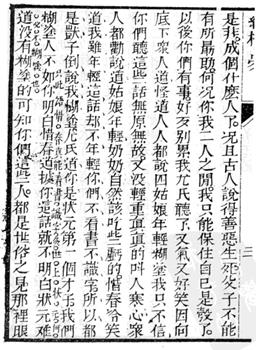 三
是我成個什麼人了况且古人說得善惡生死父子不能
有所勗助何况你我二人之間我只能保住自己是彀了
以後你們有事好歹别累我尤氏聽了又氣又好笑因向
底下衆人道怪道人人都說四姑娘年輕糊塗我只不信
你們聽這些話無原無故又沒輕重真真的叫人寒心衆
人都勸說道姑娘年輕奶奶自然該吃些虧的惜春冷笑
道我雖年輕這話却不年輕你們不看書不識字所以都
是獃子倒說我糊塗尤氏道你是狀元第一個才子我們
糊塗人不如你明白惜春道據你這話就不明白狀元難
道沒有糊塗的可知你們這些人都是世俗之見那裡眼